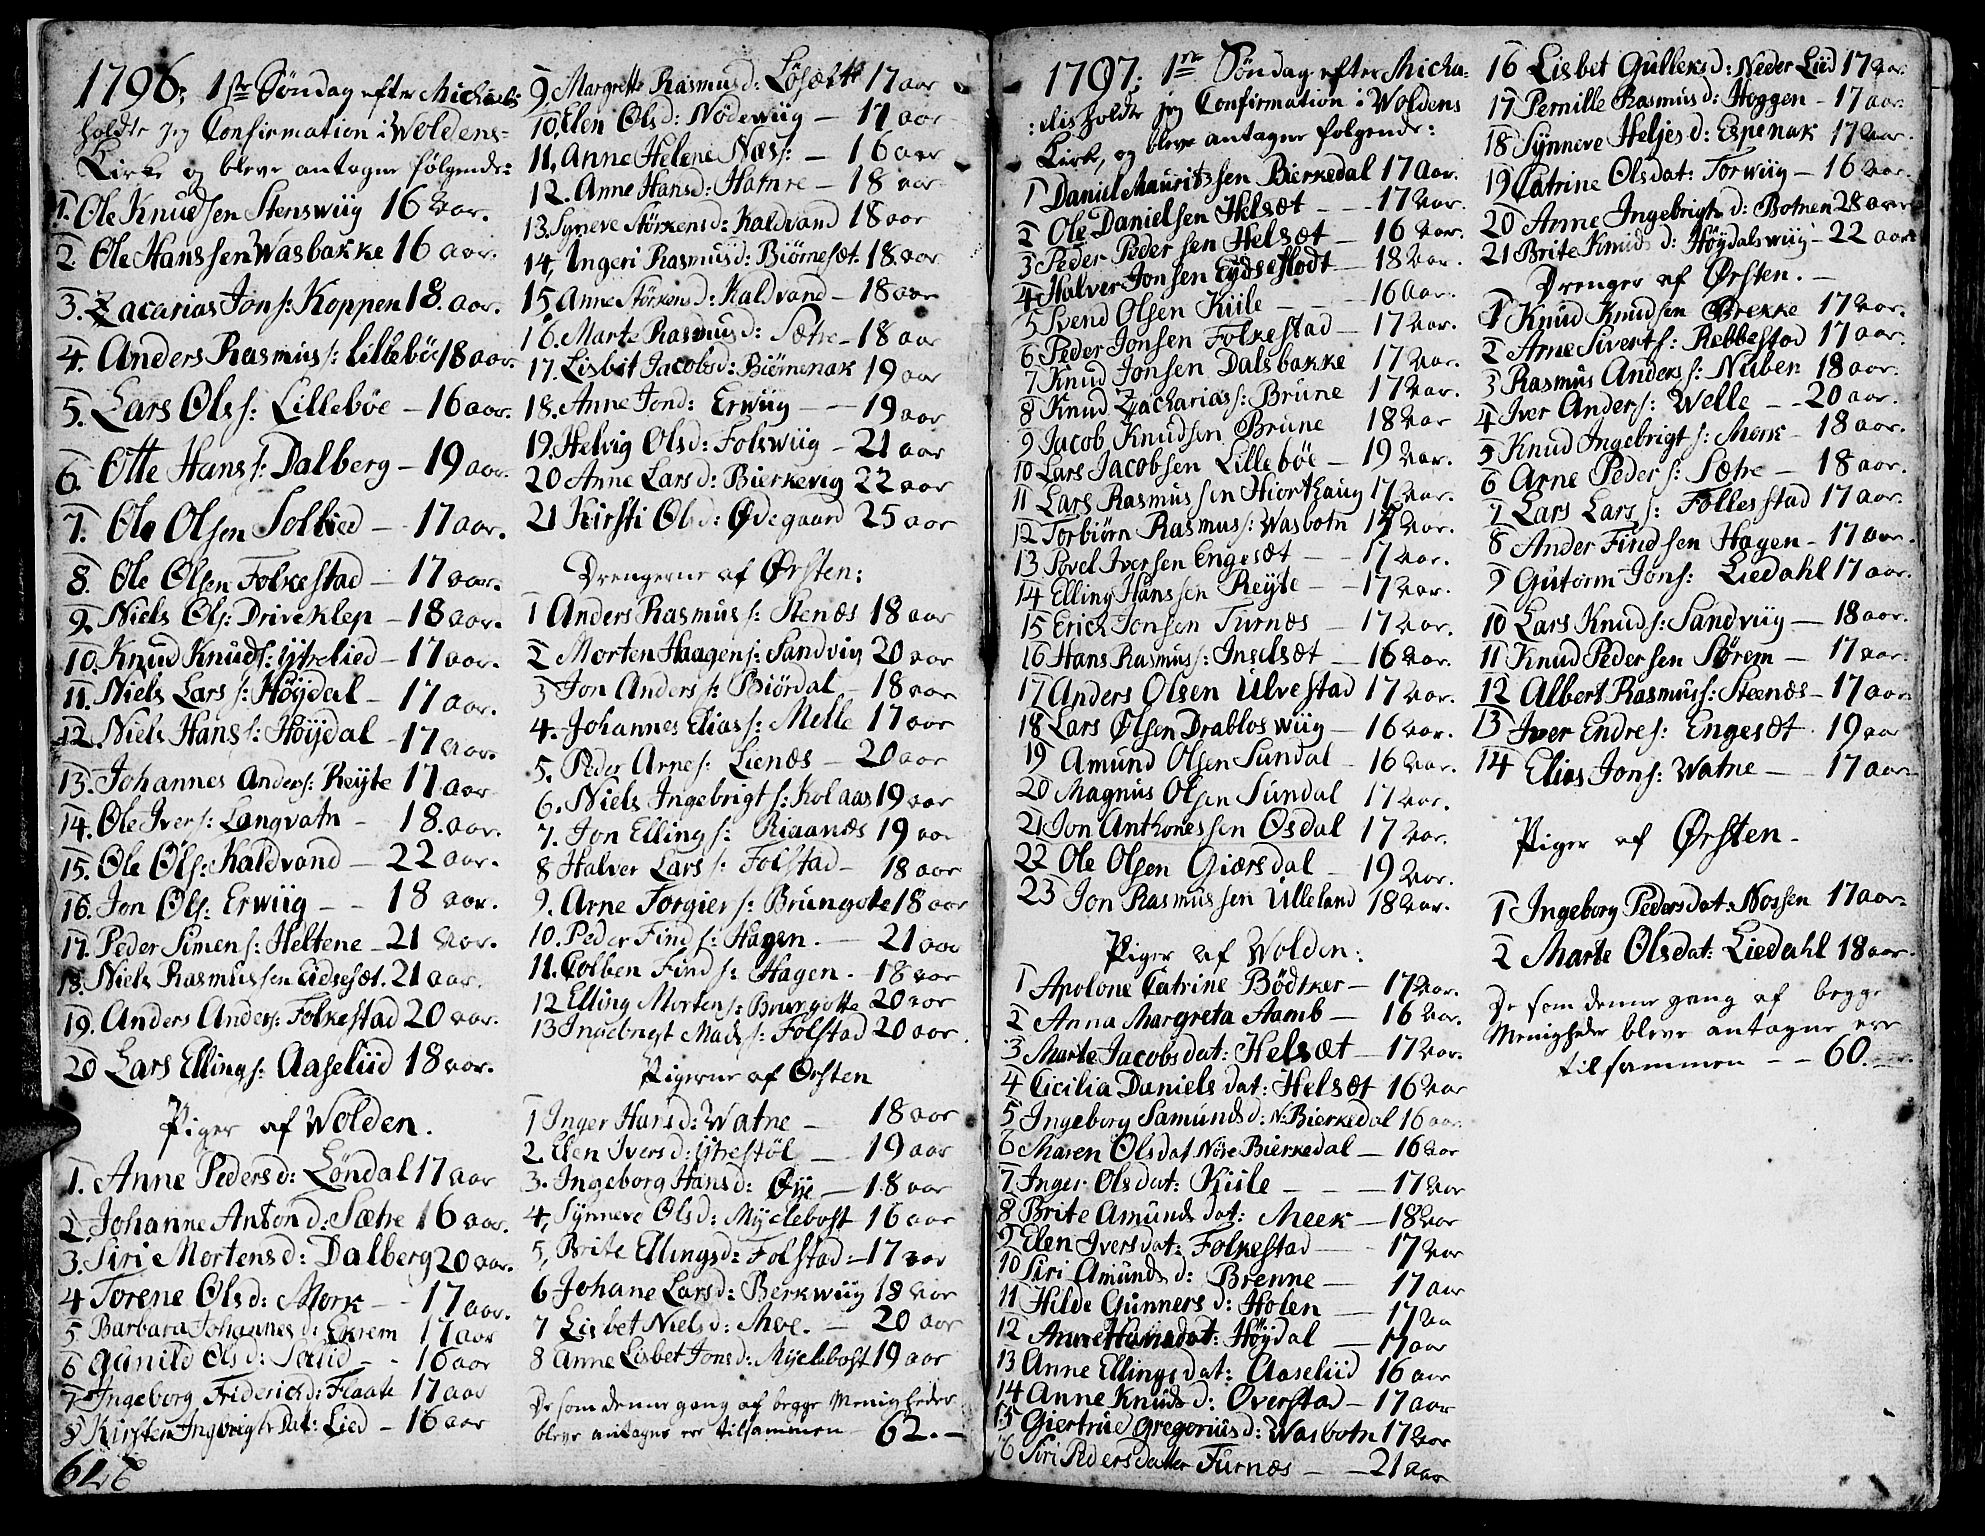 1796, 1ste Søndag efter Michaels
holdte jeg Confirmation i Woldens=
Kirke og bleve antagne følgende:
1. Ole Knudsen Stenswiig 16 aar.
2 Ole Hanssen Wasbakke 16 aar.
3. Zacarias Jons: Koppen 18. aar.
4. Anders Rasmus s: Lillebøe 18 aar.
5. Lars Ols s: Lillebøe – 16 aar.
6. Otte Hans s: Dalberg – 19 aar.
7. Ole Olsen Solliед – 17 aar.
8. Ole Olsen Folkestad – 17 aar.
9. Niels Ols: Driveklep – 18 aar.
10. Knud Knuds: Ytrelied – 17 aar.
11. Niels Lars s: Høydal – 17 aar.
12. Niels Hans s: Høydal – 17 aar.
13. Johannes Anders: Reyte 17 aar
14. Ole Ivers: Langvatn – 18. aar.
15. Ole Ols: Kaldvand – 22 aar.
16. Jon Ols: Erwiig – – 18 aar.
17. Peder Simens: Heltene – 21 aar.
18. Niels Rasmussen Eidseset. 21 aar.
19. Anders Anders: Folkestad 20 aar.
20 Lars Ellings: Aaseliid 18 aar.
Piger af Wolden.
1. Anne Pedersd: Løndal 17 aar
2. Johanne Antond: Sætre 16 aar.
3. Siri Mortensd: Dalberg 20 aar.
4 Torene Olsd: Mork – – 17 aar.
5 Barbara Johannesd: Ekrem 17 aar
6 Gunild Olsd: – – 16 aar
7 Ingeborg Friderichd: Flaate 17 aar
8 Kirsten Ingbrigts Dat: Lied – 16 aar
9. Margrette Rasmusd: Løsætt 17 aar
10, Elen Olsd: Nødewiig – 17 aar
11, Anne Helene Næss: – 16 aar
12. Anne Hansd: Hamre – 18 aar
13. Synneve Størkensd: Kaldvand 18 aar
14, Ingeri Rasmusd: Biørneset 18 aar
15. Anne Størkensd: Kaldvand – 18 aar
16. Marte Rasmusd: Sætre – 18 aar
17. Lisbet Jacobsd: Biørnenak 19 aar
18. Anne Jond: Erwiig – – 19 aar
19. Helvig Olsd: Folswiig – 21 aar
20 Anne Larsd: Bierkevig 22 aar
21 Kirsti Olsd: Ødegaard 25 aar
Drengerne af Ørsten:
1 Anders Rasmus s: Stenæs 18 aar
2 Morten Haagens: Sandvig 20 aar
3 Jon Anders s: Biørdal – 18 aar
4. Johannes Elias s: Melle 17 aar
5. Peder Arnes: Lienæs – 20 aar
6. Niels Ingebrigt s: Kolaas 19 aar
7. Jon Elling s: Riaanæs 19 aar
8 Halver Lars s: Folstad – 18 aar
9. Arne Torgier s: Brungote 18 aar
10. Peder Find s: Hagen. – 21 aar
11. Colben Find s: Hagen. – 18 aar
12 Elling Mortens: Brungotte 20 aar
13 Ingebrigt Mads s: Folstad 20 aar.
Pigerne af Ørsten
1 Inger Hansd: Watne – 18 aar
2. Elen Iversd: Ytrestøl – 19 aar
3. Ingeborg Hansd: Øye – 18 aar
4, Synneve Olsd: Myclebost 16 aar
5, Brite Ellingsd: Folstad – 17 aar
6 Johane Larsd: Berkwiig 18 aar
7 Lisbet Nielsd: Mve. – 20 aar
8 Anne Lisbet Jonsd: Myclebost 19 aar
De som denne gang af begge Menigheder
bleve antagne er tilsammen – 62. –
1797, 1ste Søndag efter Micha=
:elis holdte jeg Confirmation i Woldens
Kirke, og bleve antagne følgende:
1 Daniel Mauritssen Bierkedal 17 Aar.
2 Ole Danielsen Helsæt – – 17 aar.
3 Peder Pedersen Helsæt – 16 aar.
4 Halver Jonsen Eydseflodt – 18 aar.
5 Svend Olsen Kiile – – – 16 Aar.
6 Peder Jonsen Folkestad – 17 aar.
7 Knud Jonsen Dalsbakke 17 aar.
8 Knud Zacharias s: Brune 17 aar.
9 Jacob Knudsen Brune 18 aar
10 Lars Jacobsen Lillebøe – 19 aar.
11 Lars Rasmussen Hiorthaug 17 aar.
12 Torbiørn Rasmus s: Wasbotn 17 aar.
13 Povel Iversen Engesæt – – 17 aar.
14 Elling Hanssen Reyte – 17 aar.
15 Erich Jonsen Furnæs – 17 aar.
16 Hans Rasmus s: Inselsæt – 16 aar.
17 Anders Olsen Ulvestad 17 aar.
18 Lars Olsen Drabloswiig – 16 aar.
19 Amund Olsen Sundal – 16 aar.
20 Magnus Olsen Sundal 17 aar.
21 Jon Anthonessen Osdal 17 aar.
22 Ole Olsen Giærsdal – 19 aar.
23 Jon Rasmussen Ulleland 18 aar.
Piger af Wolden:
1 Apolone Catrine Bødtker – 17 aar.
2 Anna Margreta Aamb – 16 aar.
3 Marte Jacobsdat: Helsæt – 17 aar.
4 Cicilia Danielsdat: Helsæt 16 aar
5 Ingeborg Samundsd: N. Bierkedal 16 aar
6 Maren Olsdat Nøre Bierkedal – 16 aar
7 Inger Olsdat: Kiile – – – 17 aar
8 Brite Amundsdat: Meek – 18 aar
9 Elen Iversdat: Folkestad – – 17 aar
10 Siri Amundsd: Brenne – 17 aar
11 Hilde Gunnersd: Holen – 17 aa
12 Anne Hansdat: Høydal – 17 aar
13 Anne Ellingsdat: Aaseliid 16 aar
14 Anne Knudsd: Overstad – 17 aar
15 Giertrue Gregoriusd: Wasbotn 17 aar
Siri Pedersdatter Furnæs – – 21 aar
16 Lisbet Gulleksd: Neder Liid 17 aar.
17 Pernille Rasmusd: Hoggen – 17 aar.
18 Synneve Heljesd: Espenak 17 aar.
19 Catrine Olsdat: Torwiig – 16 aar.
20 Anne Ingebrigtsd: Botnen 28 aar
21 Brite Knudsd: Høydalswiig – 22 aar
Drenger af Ørsten. –
1 Knud Knudsen Brekke 17 aar.
2 Arne Siverts: Rebbestad 17 aar.
3 Rasmus Anders s: Nuben 18 aar.
4 Iver Anders: Welle – – 20 aar.
5 Knud Ingebrigt s: Mork – 18 aar.
6 Arne Peder s: Sætre – 18 aar.
7 Lars Lars s: Follestad 17 aar.
8 Ander Findsen Hagen – 17 aar.
9 Gutorm Jons: Liedahl 17 aar.
10 Lars Knuds: Sandviig – 18 aar.
11 Knud Pedersen Sørem – 17 aar.
12 Albert Rasmus s: Steenæs – 17 aar.
13 Iver Endres: Engesæt. 19 aar
14 Elias Jons: Watne – – 17 aar.
Piger af Ørsten –
1 Ingeborg Pedersdat: Nossen 17 aar.
2 Marte Olsdat: Liedahl 18 aar.
De som denne gang af begge
Menigheder bleve antagne ere
tilsammen – – 60.